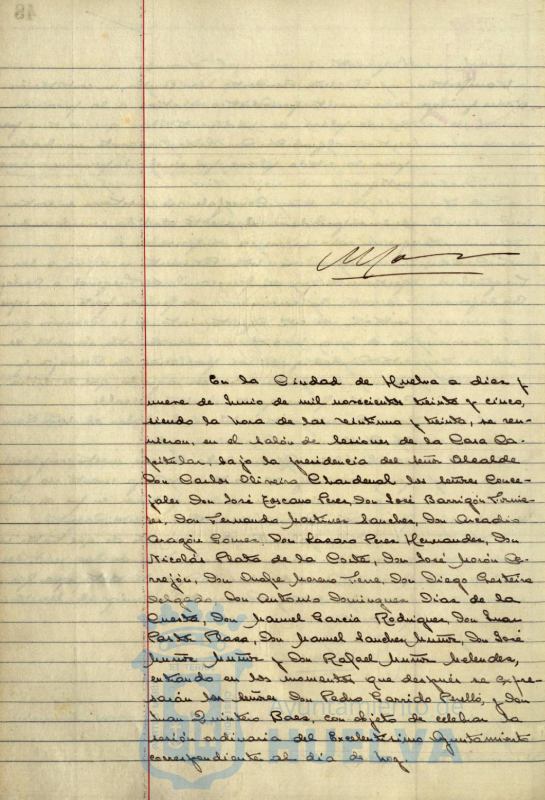 En la Ciudad de Huelva a diez y
nueve de Junio de mil novecientos treinta y cinco,
siendo la hora de las veintiuna y treinta, se reu-
nieron, en el salón de sesiones de la Casa Ca-
pitular, bajo la presidencia del señor Alcalde
Don Carlos Oliveira Chardenal los señores Conce-
jales Don José Toscano Perez, Don José Barrigón Fornie-
les, Don Fernando Martinez Sanchez, Don Arcadio
Aragón Gómez, Don Lazaro Perez Hernandez, Don
Nicolás Plata de la Corte, Don José Morón Ce-
rrejón, Don Onofre Moreno, Don Diego
Delgado, Don Antonio Dominguez Diaz de la
Cuesta, Don Manuel Garcia Rodriguez, Don Juan
Plaza, Don Manuel Sanchez Muñoz, Don José
Muñoz Muñoz y Don Rafael Muñoz Melendez,
entrando en los momentos que después se expre-
sarán los señores Don Pedro Garrido Perelló, y Don
Juan Quintero Baez, con objeto de celebrar la
sesión ordinaria del Excelentísimo Ayuntamiento
correspondiente al dia de hoy.
Ayuntamiento de
HUELVA